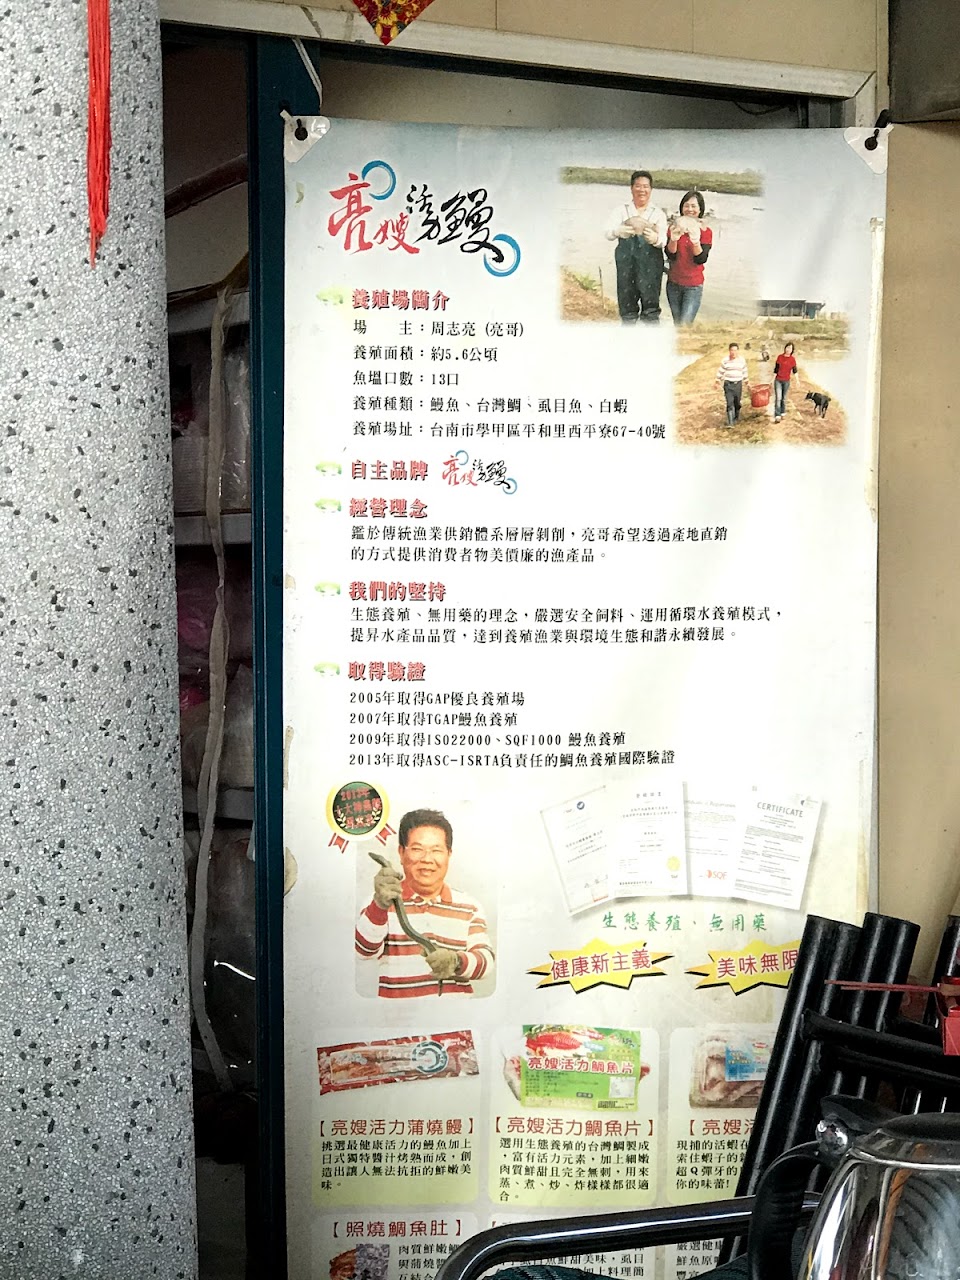 亮嫂湧鰻
養殖場簡介
場　　主：周志亮 (亮哥)
養殖面積：約5.6公頃
魚塭口數：13口
養殖種類：鰻魚、台灣鯛、虱目魚、白蝦
養殖場址：台南市學甲區平和里西平寮67-40號
自主品牌 亮嫂湧鰻
經營理念
鑑於傳統漁業供銷體系層層剝削，亮哥希望透過產地直銷
的方式提供消費者物美價廉的漁產品。
我們的堅持
生態養殖、無用藥的理念，嚴選安全飼料、運用循環水養殖模式，
提昇水產品品質，達到養殖漁業與環境生態和諧永續發展。
取得驗證
2005年取得GAP優良養殖場
2007年取得TGAP鰻魚養殖
2009年取得ISO22000、SQF1000 鰻魚養殖
2013年取得ASC-ISRTA負責任的鯛魚養殖國際驗證
2013年
CERTIFICATE
SQF
生態養殖、無用藥
健康新主義
美味無限
亮嫂活力鯛魚片
【亮嫂活力蒲燒鰻】
挑選最健康活力的鰻魚加上
日式獨特醬汁烤熟而成，創
造出讓人無法抗拒的鮮嫩美
味。
【亮嫂活力鯛魚片】
選用生態養殖的台灣鯛製成
，富有活力元素，加上細嫩
肉質鮮甜且完全無刺，用來
蒸、煮、炒、炸樣樣都很適
合。
【亮嫂活
現捕的活蝦在
索住蝦子的
超Q彈牙的
你的味蕾!
【照燒鯛魚肚】
肉質鮮嫩鯛
與蒲燒醬
互結合
魚鮮甜美味，虱目
加上料理簡
嚴選健康
鮮魚原
豐富